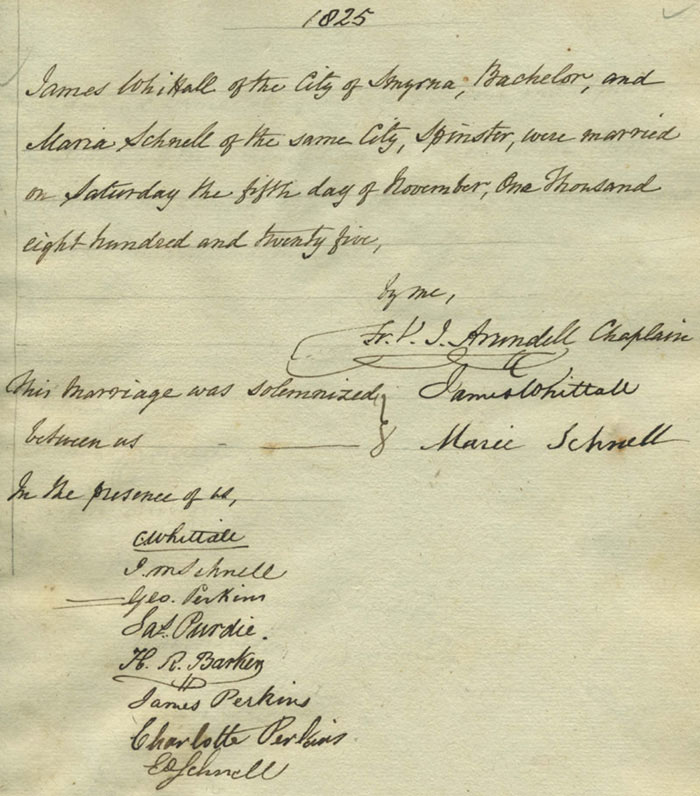 1825
James Whittall of the City of Smyrna, Bachelor, and
Maria Schnell of the same City, Spinster, were married
on Saturday the fifth day of November, One Thousand
eight hundred and twenty five,
by me,
Fr. V. J. Arundell Chaplain
This Marriage was solemnized James Whittall
between us Marie Schnell
In the presence of us,
CWhittall
J. M Schnell
Geo. Perkins
Jas. Purdie.
H. R. Barker
James Perkins
Charlotte Perkins
Schnell